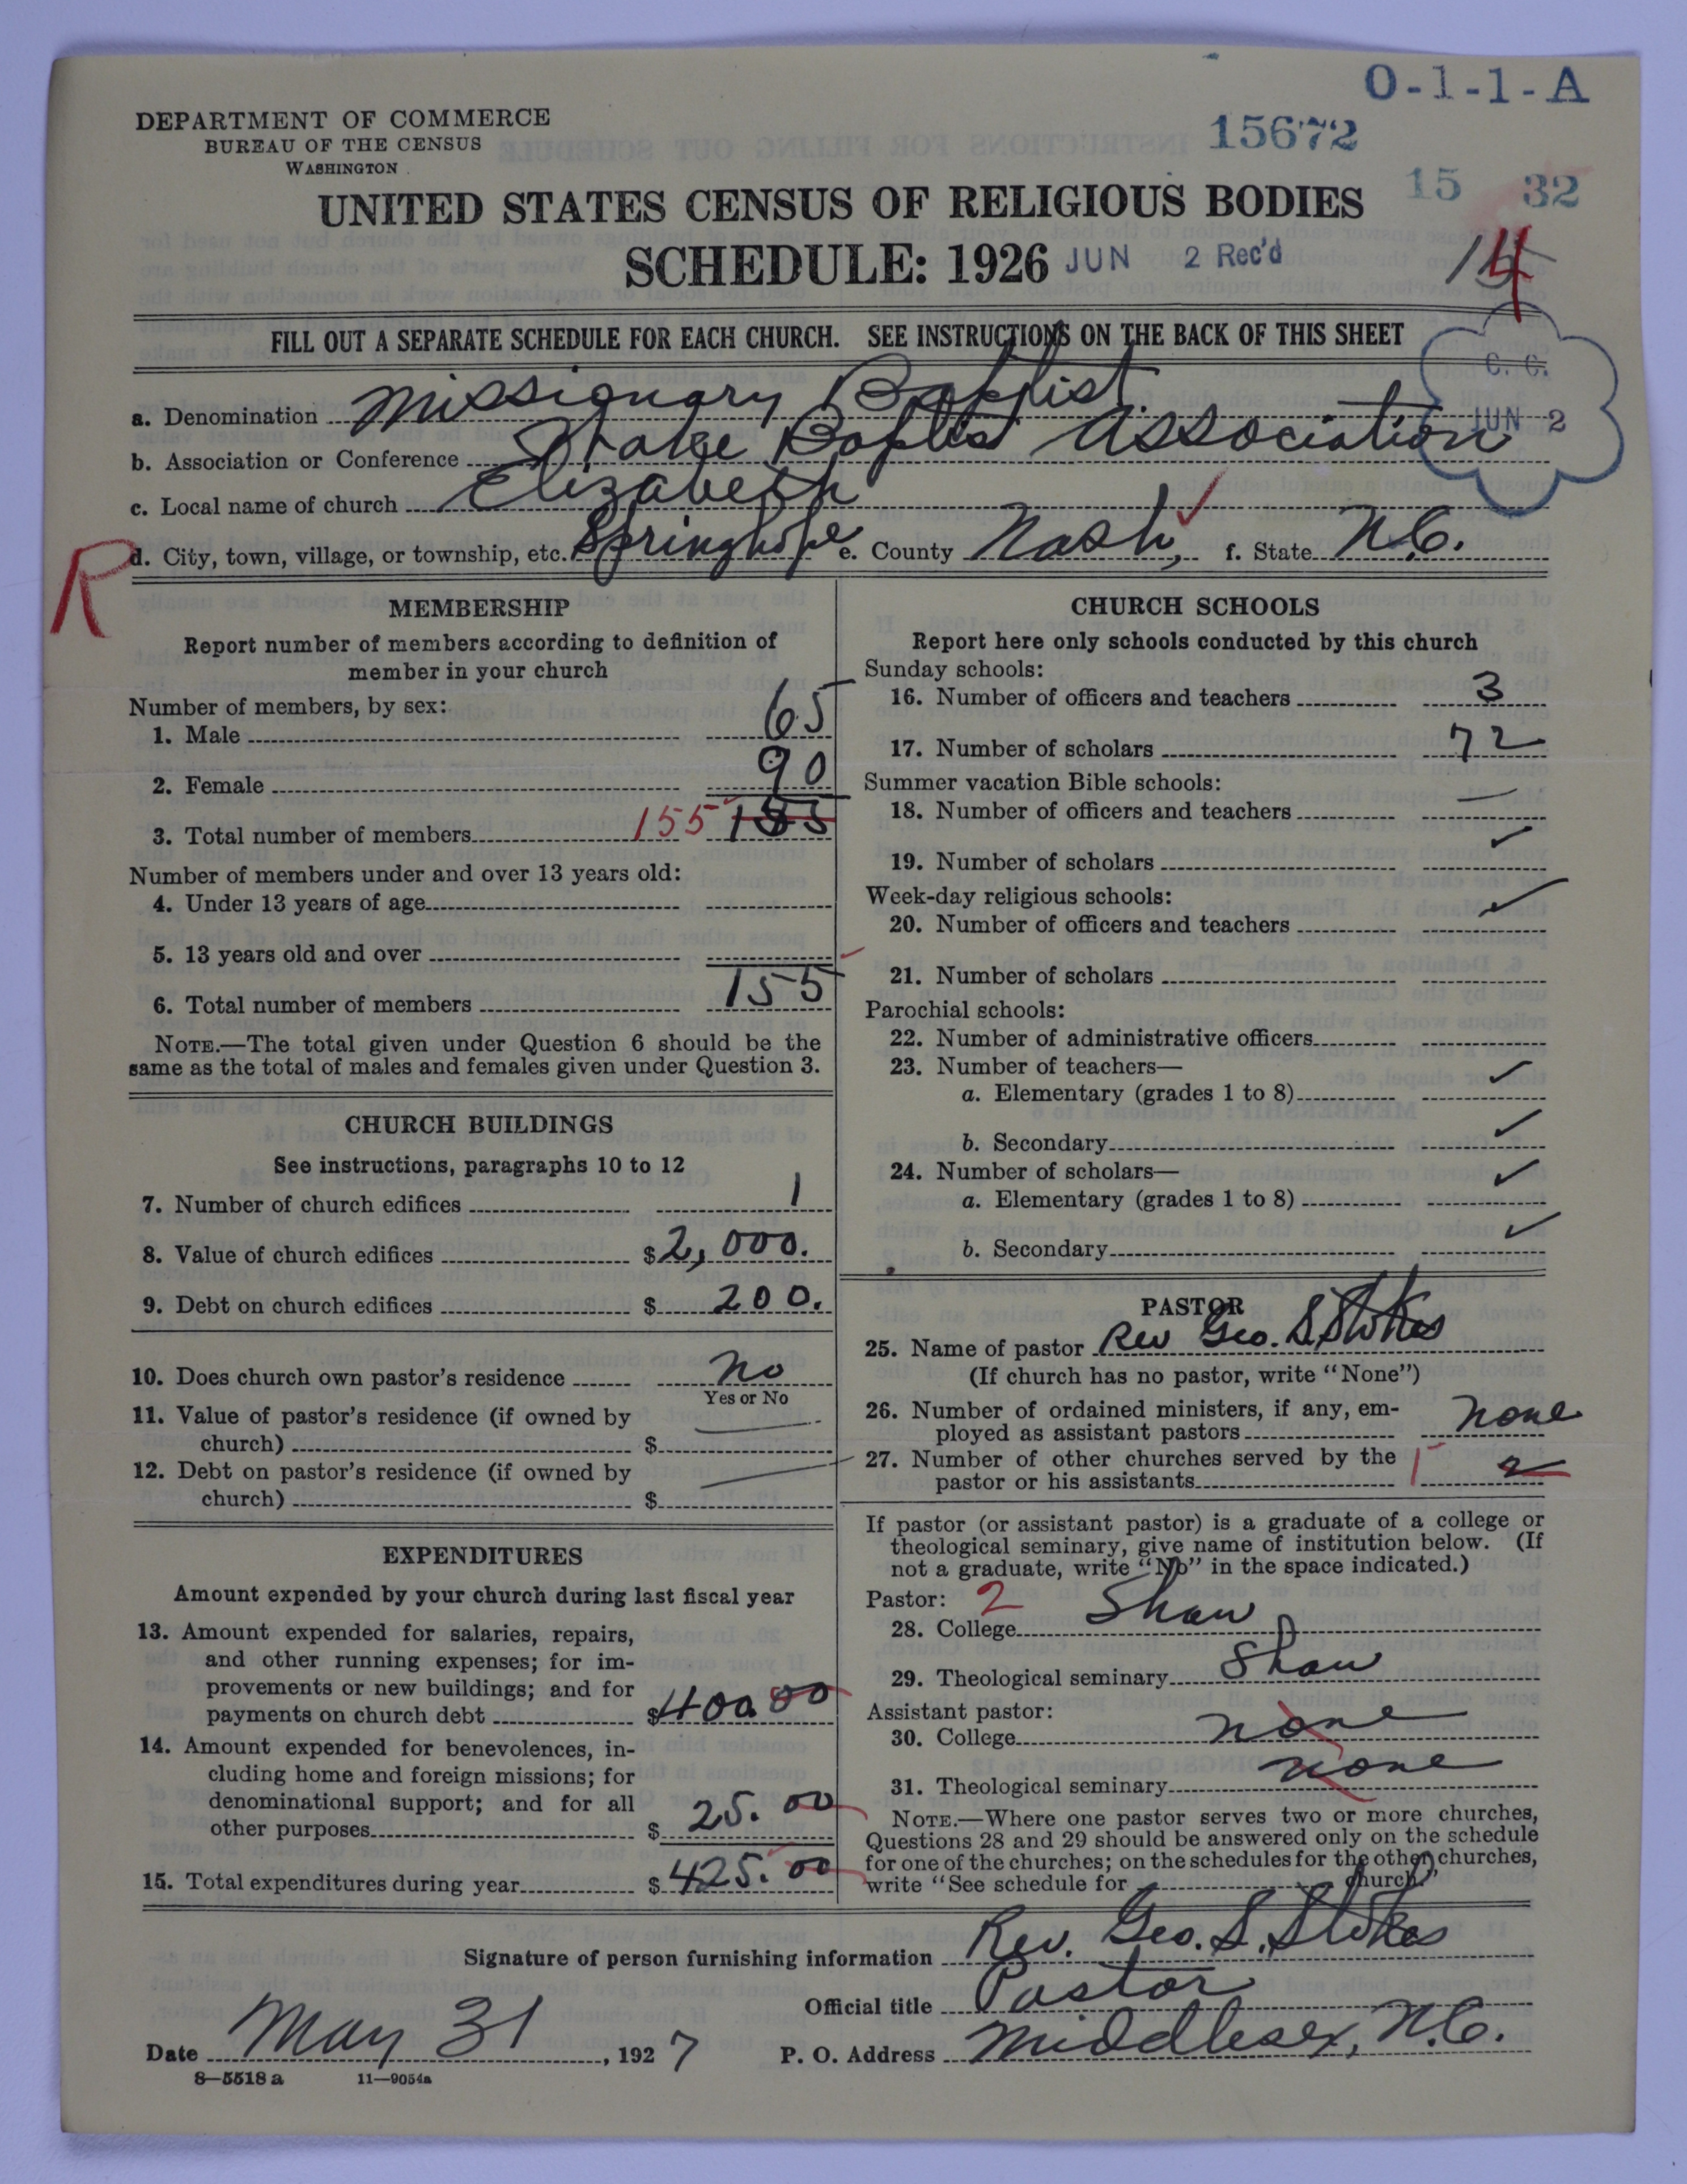 O-1-1-A
DEPARTMENT OF COMMERCE
BUREAU OF THE CENSUS
WASHINGTON
15672
15 32
UNITED STATES CENSUS OF RELIGIOUS BODIES
SCHEDULE: 1926 JUN 2 Rec'd
14
FILL OUT A SEPARATE SCHEDULE FOR EACH CHURCH. SEE INSTRUCTIONS ON THE BACK OF THIS SHEET
C. C.
JUN 2
a. Denomination Missionary Baptist
b. Association or Conference Baptist Association
c. Local name of church Elizabeth
R
d. City, town, village, or township, etc. Springhope e. County Nash, f. State N.C.
MEMBERSHIP
Report number of members according to definition of
member in your church
Number of members, by sex:
1. Male 65
2. Female 90
3. Total number of members 155
Number of members under and over 13 years old:
4. Under 13 years of age
5. 13 years old and over
6. Total number of members 155
NOTE.—The total given under Question 6 should be the
same as the total of males and females given under Question 3.
CHURCH BUILDINGS
See instructions, paragraphs 10 to 12
7. Number of church edifices 1
8. Value of church edifices $2,000.
9. Debt on church edifices $ 200.
10. Does church own pastor's residence no
Yes or No
11. Value of pastor's residence (if owned by
church) $
12. Debt on pastor's residence (if owned by
church) $
EXPENDITURES
Amount expended by your church during last fiscal year
13. Amount expended for salaries, repairs,
and other running expenses; for im-
provements or new buildings; and for
payments on church debt $400.00
14. Amount expended for benevolences, in-
cluding home and foreign missions; for
denominational support; and for all
other purposes $ 25.00
15. Total expenditures during year $ 425.00
CHURCH SCHOOLS
Report here only schools conducted by this church
Sunday schools:
16. Number of officers and teachers 3
17. Number of scholars 72
Summer vacation Bible schools:
18. Number of officers and teachers —
19. Number of scholars ✓
Week-day religious schools:
20. Number of officers and teachers ✓
21. Number of scholars
Parochial schools:
22. Number of administrative officers
23. Number of teachers—
a. Elementary (grades 1 to 8) ✓
b. Secondary ✓
24. Number of scholars—
a. Elementary (grades 1 to 8) ✓
b. Secondary ✓
PASTOR
25. Name of pastor Rev Geo. S. Stokes
(If church has no pastor, write "None")
26. Number of ordained ministers, if any, em-
ployed as assistant pastors none
27. Number of other churches served by the
pastor or his assistants 1 2
If pastor (or assistant pastor) is a graduate of a college or
theological seminary, give name of institution below. (If
not a graduate, write "No" in the space indicated.)
Pastor: 2
28. College Shaw
29. Theological seminary Shaw
Assistant pastor:
30. College none
31. Theological seminary none
NOTE.—Where one pastor serves two or more churches,
Questions 28 and 29 should be answered only on the schedule
for one of the churches; on the schedules for the other churches,
write "See schedule for church."
Signature of person furnishing information Rev. Geo. S. Stokes
Official title Pastor
Date May 31, 1927 P. O. Address Middlesex, N.C.
8—5518 a 11—9054a